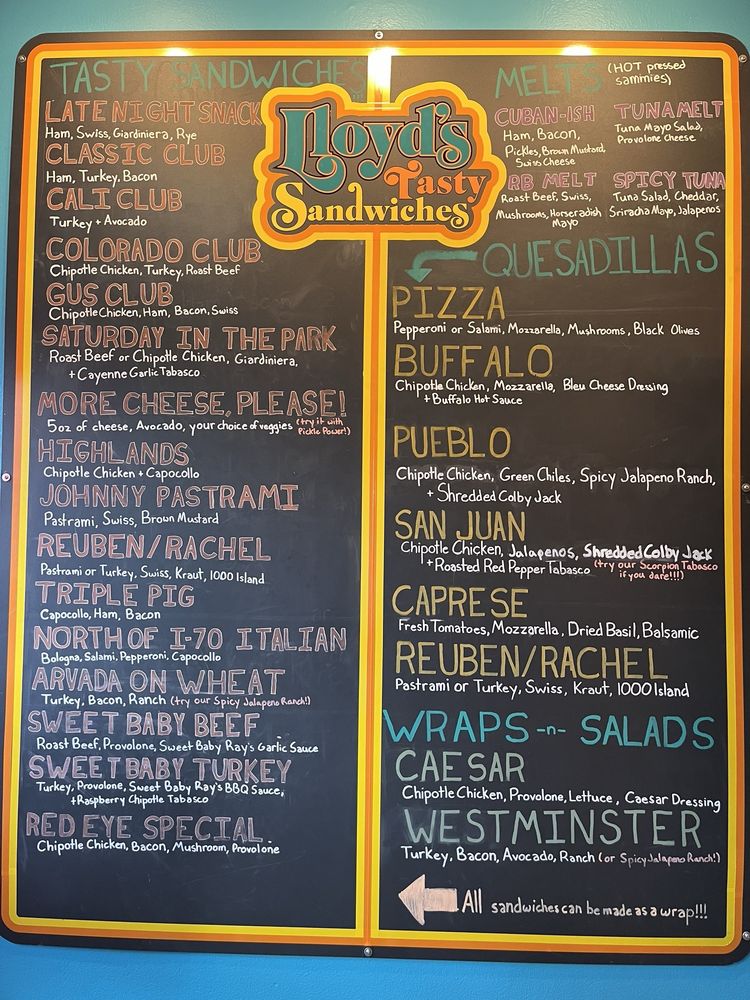 TASTY SANDWICHES
LATE NIGHT SNACK
Ham, Swiss, Giardiniera, Rye
CLASSIC CLUB
Ham, Turkey, Bacon
CALI CLUB
Turkey + Avocado
COLORADO CLUB
Chipotle Chicken, Turkey, Roast Beef
GUS CLUB
Chipotle Chicken, Ham, Bacon, Swiss
SATURDAY IN THE PARK
Roast Beef or Chipotle Chicken, Giardiniera,
+ Cayenne Garlic Tabasco
MORE CHEESE, PLEASE!
5oz of cheese, Avocado, your choice of veggies (try it with
Pickle Power!)
HIGHLANDS
Chipotle Chicken + Capocollo
JOHNNY PASTRAMI
Pastrami, Swiss, Brown Mustard
REUBEN/RACHEL
Pastrami or Turkey, Swiss, Kraut, 1000 Island
TRIPLE PIG
Capocollo, Ham, Bacon
NORTH OF I-70 ITALIAN
Bologna, Salami, Pepperoni, Capocollo
ARVADA ON WHEAT
Turkey, Bacon, Ranch (try our Spicy Jalapeno Ranch!)
SWEET BABY BEEF
Roast Beef, Provolone, Sweet Baby Ray's Garlic Sauce
SWEET BABY TURKEY
Turkey, Provolone, Sweet Baby Ray's BBQ Sauce,
+Raspberry Chipotle Tabasco
RED EYE SPECIAL
Chipotle Chicken, Bacon, Mushroom, Provolone
Lloyd's
Tasty
Sandwiches
MELTS (HOT pressed
sammies)
CUBAN-ISH
Ham, Bacon,
Pickles, Brown Mustard,
Swiss Cheese
TUNA MELT
Tuna Mayo Salad,
Provolone Cheese
RB MELT
Roast Beef, Swiss,
Mushrooms, Horseradish
Mayo
SPICY TUNA
Tuna Salad, Cheddar,
Sriracha Mayo, Jalapenos
QUESADILLAS
PIZZA
Pepperoni or Salami, Mozzarella, Mushrooms, Black Olives
BUFFALO
Chipotle Chicken, Mozzarella, Bleu Cheese Dressing
+ Buffalo Hot Sauce
PUEBLO
Chipotle Chicken, Green Chiles, Spicy Jalapeno Ranch,
+ Shredded Colby Jack
SAN JUAN
Chipotle Chicken, Jalapenos, Shredded Colby Jack
+Roasted Red Pepper Tabasco (try our Scorpion Tabasco
if you dare!!!)
CAPRESE
Fresh Tomatoes, Mozzarella, Dried Basil, Balsamic
REUBEN/RACHEL
Pastrami or Turkey, Swiss, Kraut, 1000 Island
WRAPS -n- SALADS
CAESAR
Chipotle Chicken, Provolone, Lettuce, Caesar Dressing
WESTMINSTER
Turkey, Bacon, Avocado, Ranch (or Spicy Jalapeno Ranch!)
All sandwiches can be made as a wrap!!!